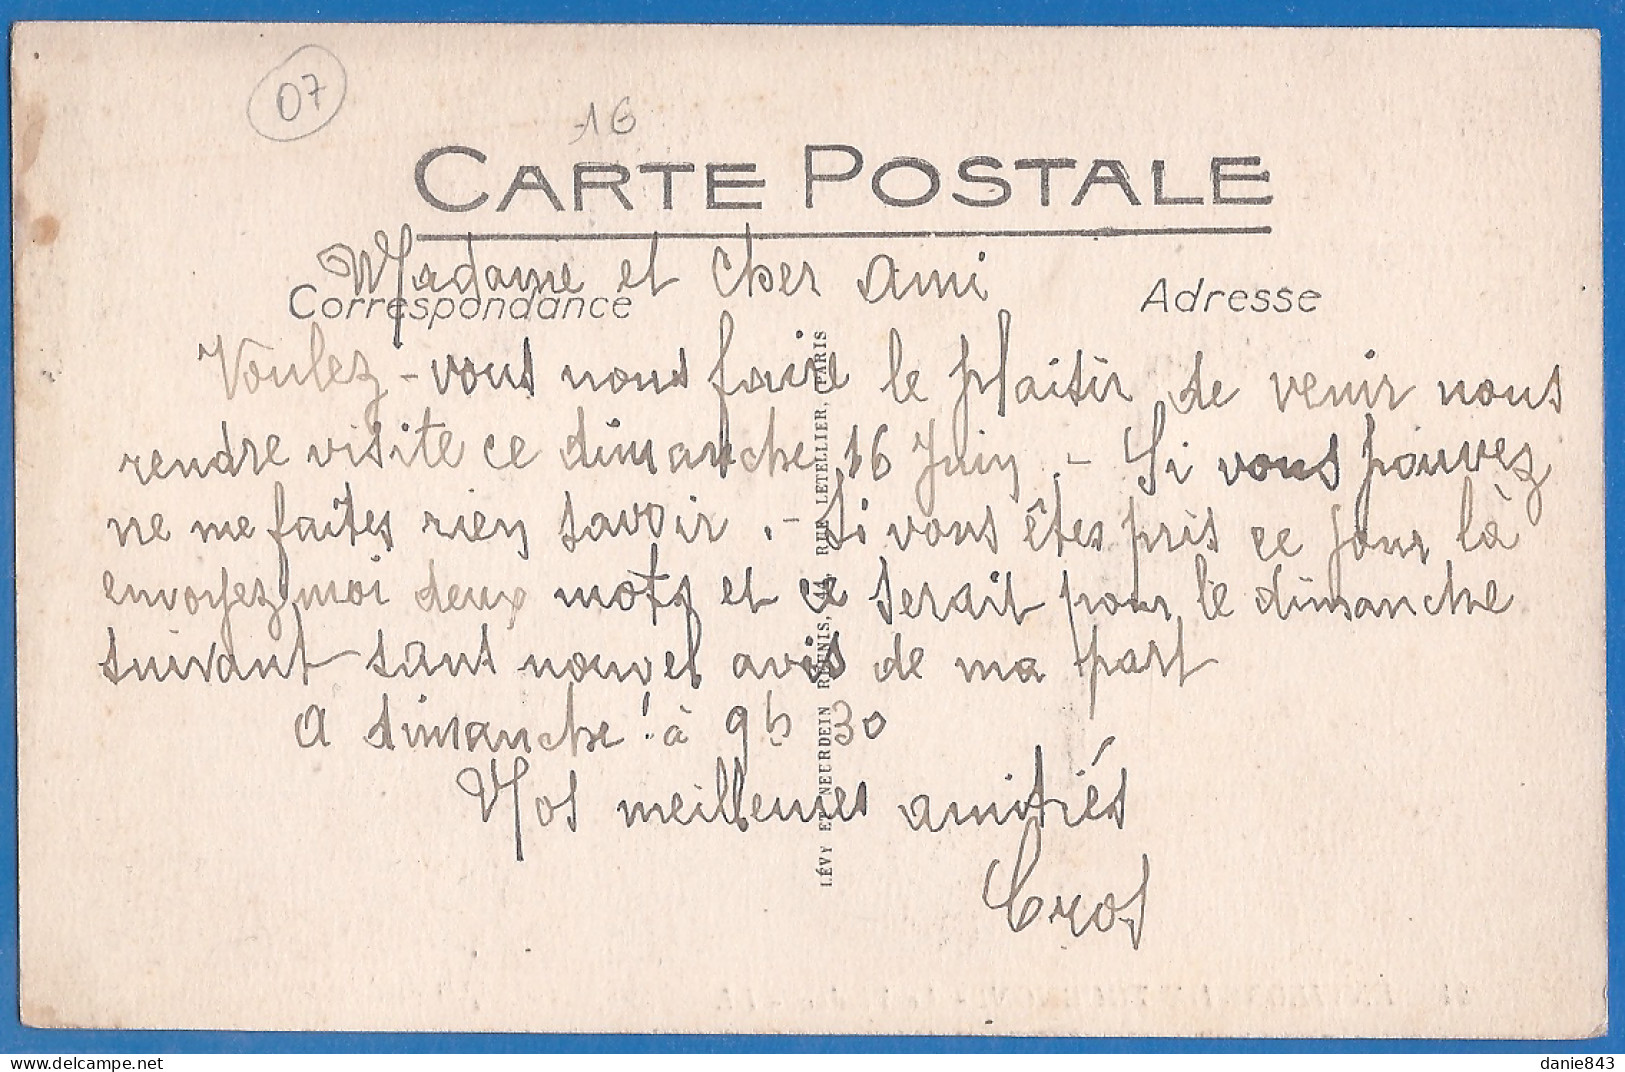 07
16
CARTE POSTALE
Correspondance
Adresse
Madame et cher ami
Voulez-vous nous faire le plaisir de venir nous
rendre visite ce dimanche 16 Juin. - Si vous pouvez
ne me faites rien savoir. - Si vous êtes pris ce jour là
envoyez moi deux mots et ce serait pour le dimanche
suivant sans nouvel avis de ma part
A dimanche ! à 9h 30
Vos meilleures amitiés
Cros
LÉVY ET NEURDEIN RÉUNIS, 44, RUE LETELLIER, PARIS
danie843